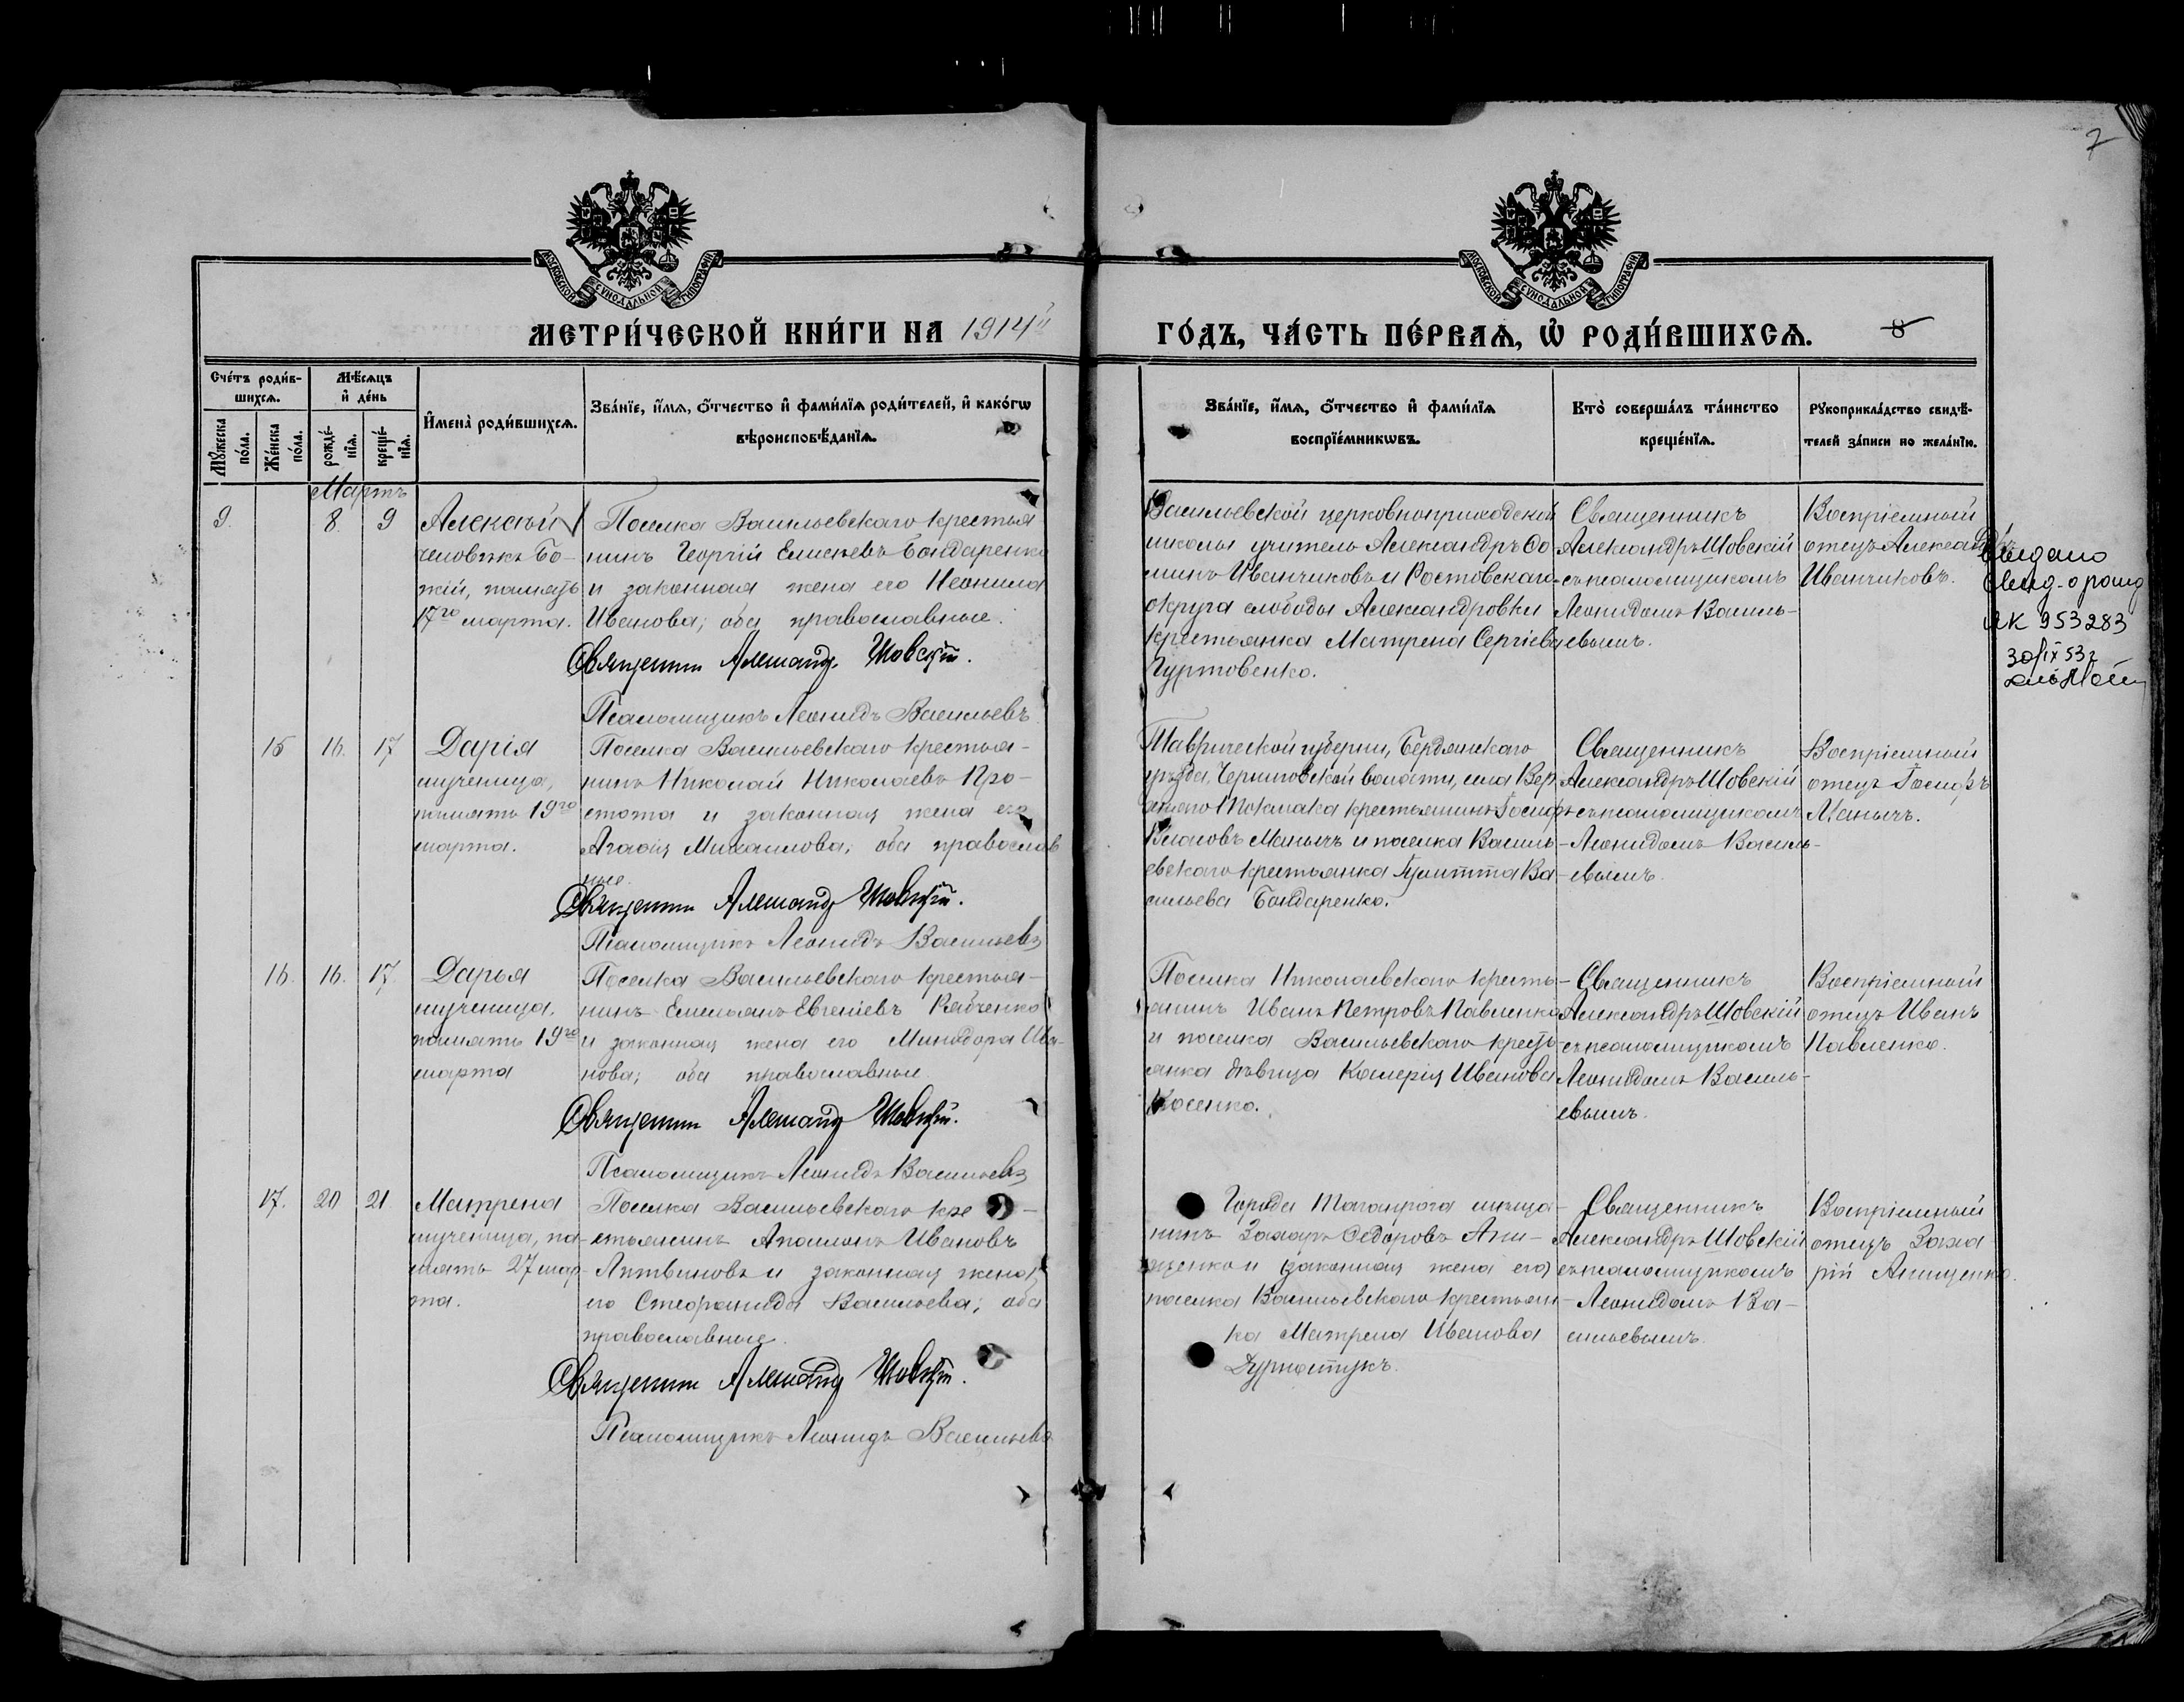 7
МОСКОВСКОЙ СѴНОДАЛЬНОЙ ТИПОГРАФІИ
МОСКОВСКОЙ СѴНОДАЛЬНОЙ ТИПОГРАФІИ
МЕТРИ́ЧЕСКОЙ КНИ́ГИ НА 1914й
ГО́ДЪ, ЧА́СТЬ ПЕ́РВАѦ, Ѡ҆ РОДИ́ВШИХСѦ.
8
Сче́тъ роди́в-
шихсѧ.
Мѣ́сѧцъ
и҆ де́нь
Мꙋ́жеска
по́ла.
Же́нска
по́ла.
рожде́-
нїѧ.
креще́-
нїѧ.
И҆мена̀ роди́вшихсѧ.
Зва́нїе, и҆́мѧ, ѻ҆́тчество и҆ фами́лїѧ роди́телей, и҆ како́гѡ
вѣроисповѣ́данїѧ.
Зва́нїе, и҆́мѧ, ѻ҆́тчество и҆ фами́лїѧ
воспрїе́мникѡвъ.
Кто̀ соверша́лъ та́инство
креще́нїѧ.
Рꙋкоприкла́дство свидѣ́-
телей за́писи по жела́нїю.
Мартъ
9.
8.
9
Алексѣй
человѣкъ Бо-
жій, память
17го марта.
Поселка Васильевскаго крестья-
нинъ Георгій Елисѣевъ Бондаренко
и законная жена его Неонила
Иванова; оба православные.
Священник Александр Шовский.
Псаломщикъ Леонидъ Васильевъ
Васильевской церковноприходской
школы учитель Александръ Фо-
минъ Иванчиковъ и Ростовскаго
округа слободы Александровки
крестьянка Матрена Сергіева
Гуртовенко.
Священникъ
Александръ Шовскій
съ псаломщикомъ
Леонидомъ Василь-
евымъ.
Воспріемный
отецъ Александръ
Иванчиковъ.
Выдано
свид. о рожд
ЯК 953283
30/IX 53г
15
16.
17
Дарія
мученица,
память 19го
марта.
Поселка Васильевскаго крестья-
нинъ Николай Николаевъ Про-
стота и законная жена его
Агафія Михаилова; оба православ
ные.
Священник Александр Шовский.
Псаломщикъ Леонидъ Васильевъ
Таврической губерніи, Бердянскаго
уѣзда, Черниговской волости, села Вер
хняго Токмака крестьянинъ Іосифъ
Власовъ Манычъ и поселка Василь-
евскаго крестьянка Іулитта Ва-
сильева Бондаренко.
Священникъ
Александръ Шовскій
съ псаломщикомъ
Леонидомъ Василь-
евымъ.
Воспріемный
отецъ Іосифъ
Манычъ.
16.
16.
17.
Дарья
мученица,
память 19го
марта
Поселка Васильевскаго крестья-
нинъ Емельянъ Евгеніевъ Рябченко
и законная жена его Минодора Ива-
нова; оба православные.
Священник Александр Шовский.
Псаломщикъ Леонидъ Васильевъ
Поселка Николаевскаго кресть-
янинъ Иванъ Петровъ Павленко
и поселка Васильевскаго кресть-
янка дѣвица Калерія Иванова
Косенко.
Священникъ
Александръ Шовскій
съ псаломщикомъ
Леонидомъ Василь-
евымъ.
Воспріемный
отецъ Иванъ
Павленко.
17.
20
21
Матрена
мученица, па-
мять 27 мар-
та.
Поселка Васильевскаго кре-
стьянинъ Аполлонъ Ивановъ
Литвиновъ и законная жена
его Стефанида Васильева; оба
православные.
Священник Александр Шовский.
Псаломщикъ Леонидъ Васильевъ
Города Таганрога мѣща-
нинъ Захаръ Федоровъ Ани-
щенко и (законная жена его)
поселка Васильевскаго крестьян-
ка Матрена Иванова
Дурностукъ.
Священникъ
Александръ Шовскій
съ псаломщикомъ
Леонидомъ Ва-
сильевымъ.
Воспріемный
отецъ Заха
рій Анищенко.